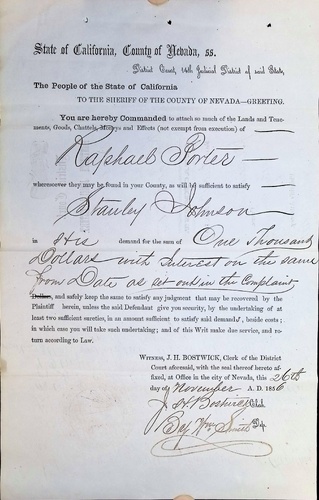 State of California, County of Nevada, ss.
District Court, 14th Judicial District of said State,
The People of the State of California
TO THE SHERIFF OF THE COUNTY OF NEVADA—GREETING.
You are hereby Commanded to attach so much of the Lands and Tene-
ments, Goods, Chattels, Moneys and Effects (not exempt from execution) of
Raphael Porter
wheresoever they may be found in your County, as will be sufficient to satisfy
Stanley Johnson
in His demand for the sum of One Thousand
Dollars with Interest on the same
from Date as set out in the Complaint
Dollars, and safely keep the same to satisfy any judgment that may be recovered by the
Plaintiff herein, unless the said Defendant give you security, by the undertaking of at
least two sufficient sureties, in an amount sufficient to satisfy said demand, beside costs;
in which case you will take such undertaking; and of this Writ make due service, and re-
turn according to Law.
WITNESS, J. H. BOSTWICK, Clerk of the District
Court aforesaid, with the seal thereof hereto af-
fixed, at Office in the city of Nevada, this 26th
day of November A. D. 1856
J. H. Bostwick Clerk
By Wm Smith Dep.